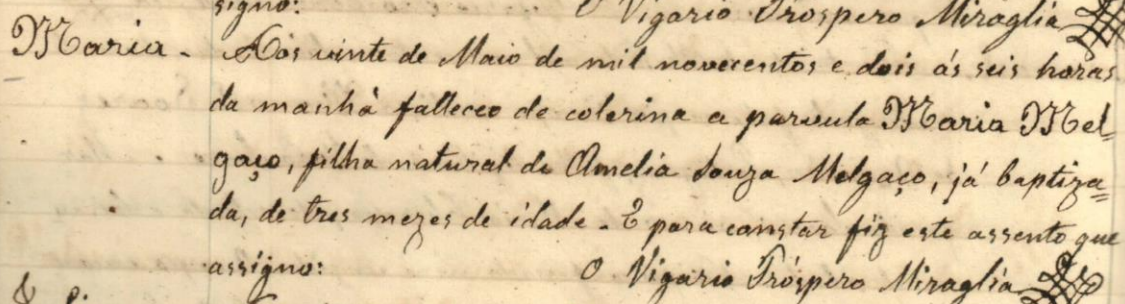 signo:
O Vigario Próspero Miraglia
Maria - Aos vinte de Maio de mil novecentos e dois ás seis horas
da manhã falleceo de colerina a parvula Maria Mel=
gaço, filha natural de Amelia Souza Melgaço, já baptiza=
da, de tres mezes de idade. E para constar fiz este assento que
assigno:
O Vigario Próspero Miraglia